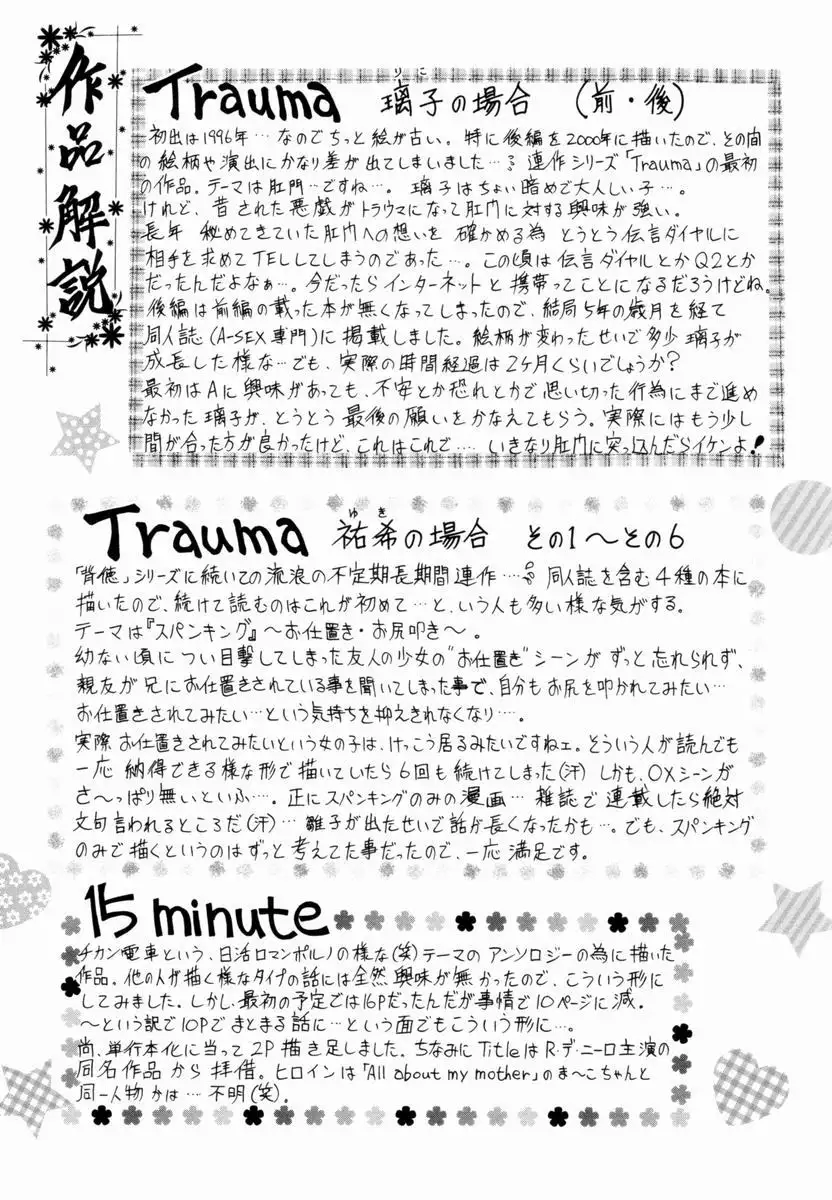 作品解説
Trauma 璃子の場合 (前・後)
りこ
初出は1996年…なのでちっと絵が古い。特に後編を2000年に描いたので、その間
の絵柄や演出にかなり差が出てしまいました…。連作シリーズ「Trauma」の最初
の作品。テーマは肛門…ですね…。璃子はちょい暗めで大人しい子…。
けれど、昔された悪戯がトラウマになって肛門に対する興味が強い。
長年 秘めてきていた肛門への想いを 確かめる為 とうとう伝言ダイヤルに
相手を求めてTELしてしまうのであった…。この頃は伝言ダイヤルとかQ2とか
だったんだよなぁ…。今だったらインターネットと携帯ってことになるだろうけどね。
後編は前編の載った本が無くなってしまったので、結局5年の歳月を経て
同人誌(A-SEX専門)に掲載しました。絵柄が変わったせいで多少 璃子が
成長した様な…でも、実際の時間経過は2ヶ月くらいでしょうか?
最初はAに興味があっても、不安とか恐れとかで思い切った行為にまで進め
なかった璃子が、とうとう最後の願いをかなえてもらう。実際にはもう少し
間が合った方が良かったけど、これはこれで…. いきなり肛門に突っ込んだらイケンよ!
Trauma 祐希の場合 その1〜その6
ゆき
「背徳」シリーズに続いての流浪の不定期長期間連作…。同人誌を含む4種の本に
描いたので、続けて読むのはこれが初めて…と、いう人も多い様な気がする。
テーマは『スパンキング』〜お仕置き・お尻叩き〜。
幼ない頃についつい目撃してしまった友人の少女の"お仕置き"シーンがずっと忘れられず、
親友が兄にお仕置きされている事を聞いてしまった事で、自分もお尻を叩かれてみたい…
お仕置きされてみたい…という気持ちを抑えきれなくなり…。
実際お仕置きされてみたいという女の子は、けっこう居るみたいですねェ。そういう人が読んでも
一応 納得できる様な形で描いていたら6回も続けてしまった(汗) しかも、OXシーンが
さ〜っぱり無いといふ…。正にスパンキングのみの漫画…雑誌で連載したら絶対
文句言われるところだ(汗)… 雛子が出たせいで話が長くなったかも…。でも、スパンキング
のみで描くというのはずっと考えてた事だったので、一応 満足です。
15 minute
チカン電車という、日活ロマンポルノの様な(笑)テーマのアンソロジーの為に描いた
作品。他の人が描く様なタイプの話には全然興味が無かったので、こういう形に
してみました。しかし、最初の予定では16Pだったんだが事情で10ページに減.
〜という訳で10Pでまとまる話に…という面でもこういう形に…。
尚、単行本化に当って2P描き足しました。ちなみにTitleはR・デ・ニーロ主演の
同名作品から拝借。ヒロインは「All about my mother」のま〜こちゃんと
同一人物かは…不明(笑)。